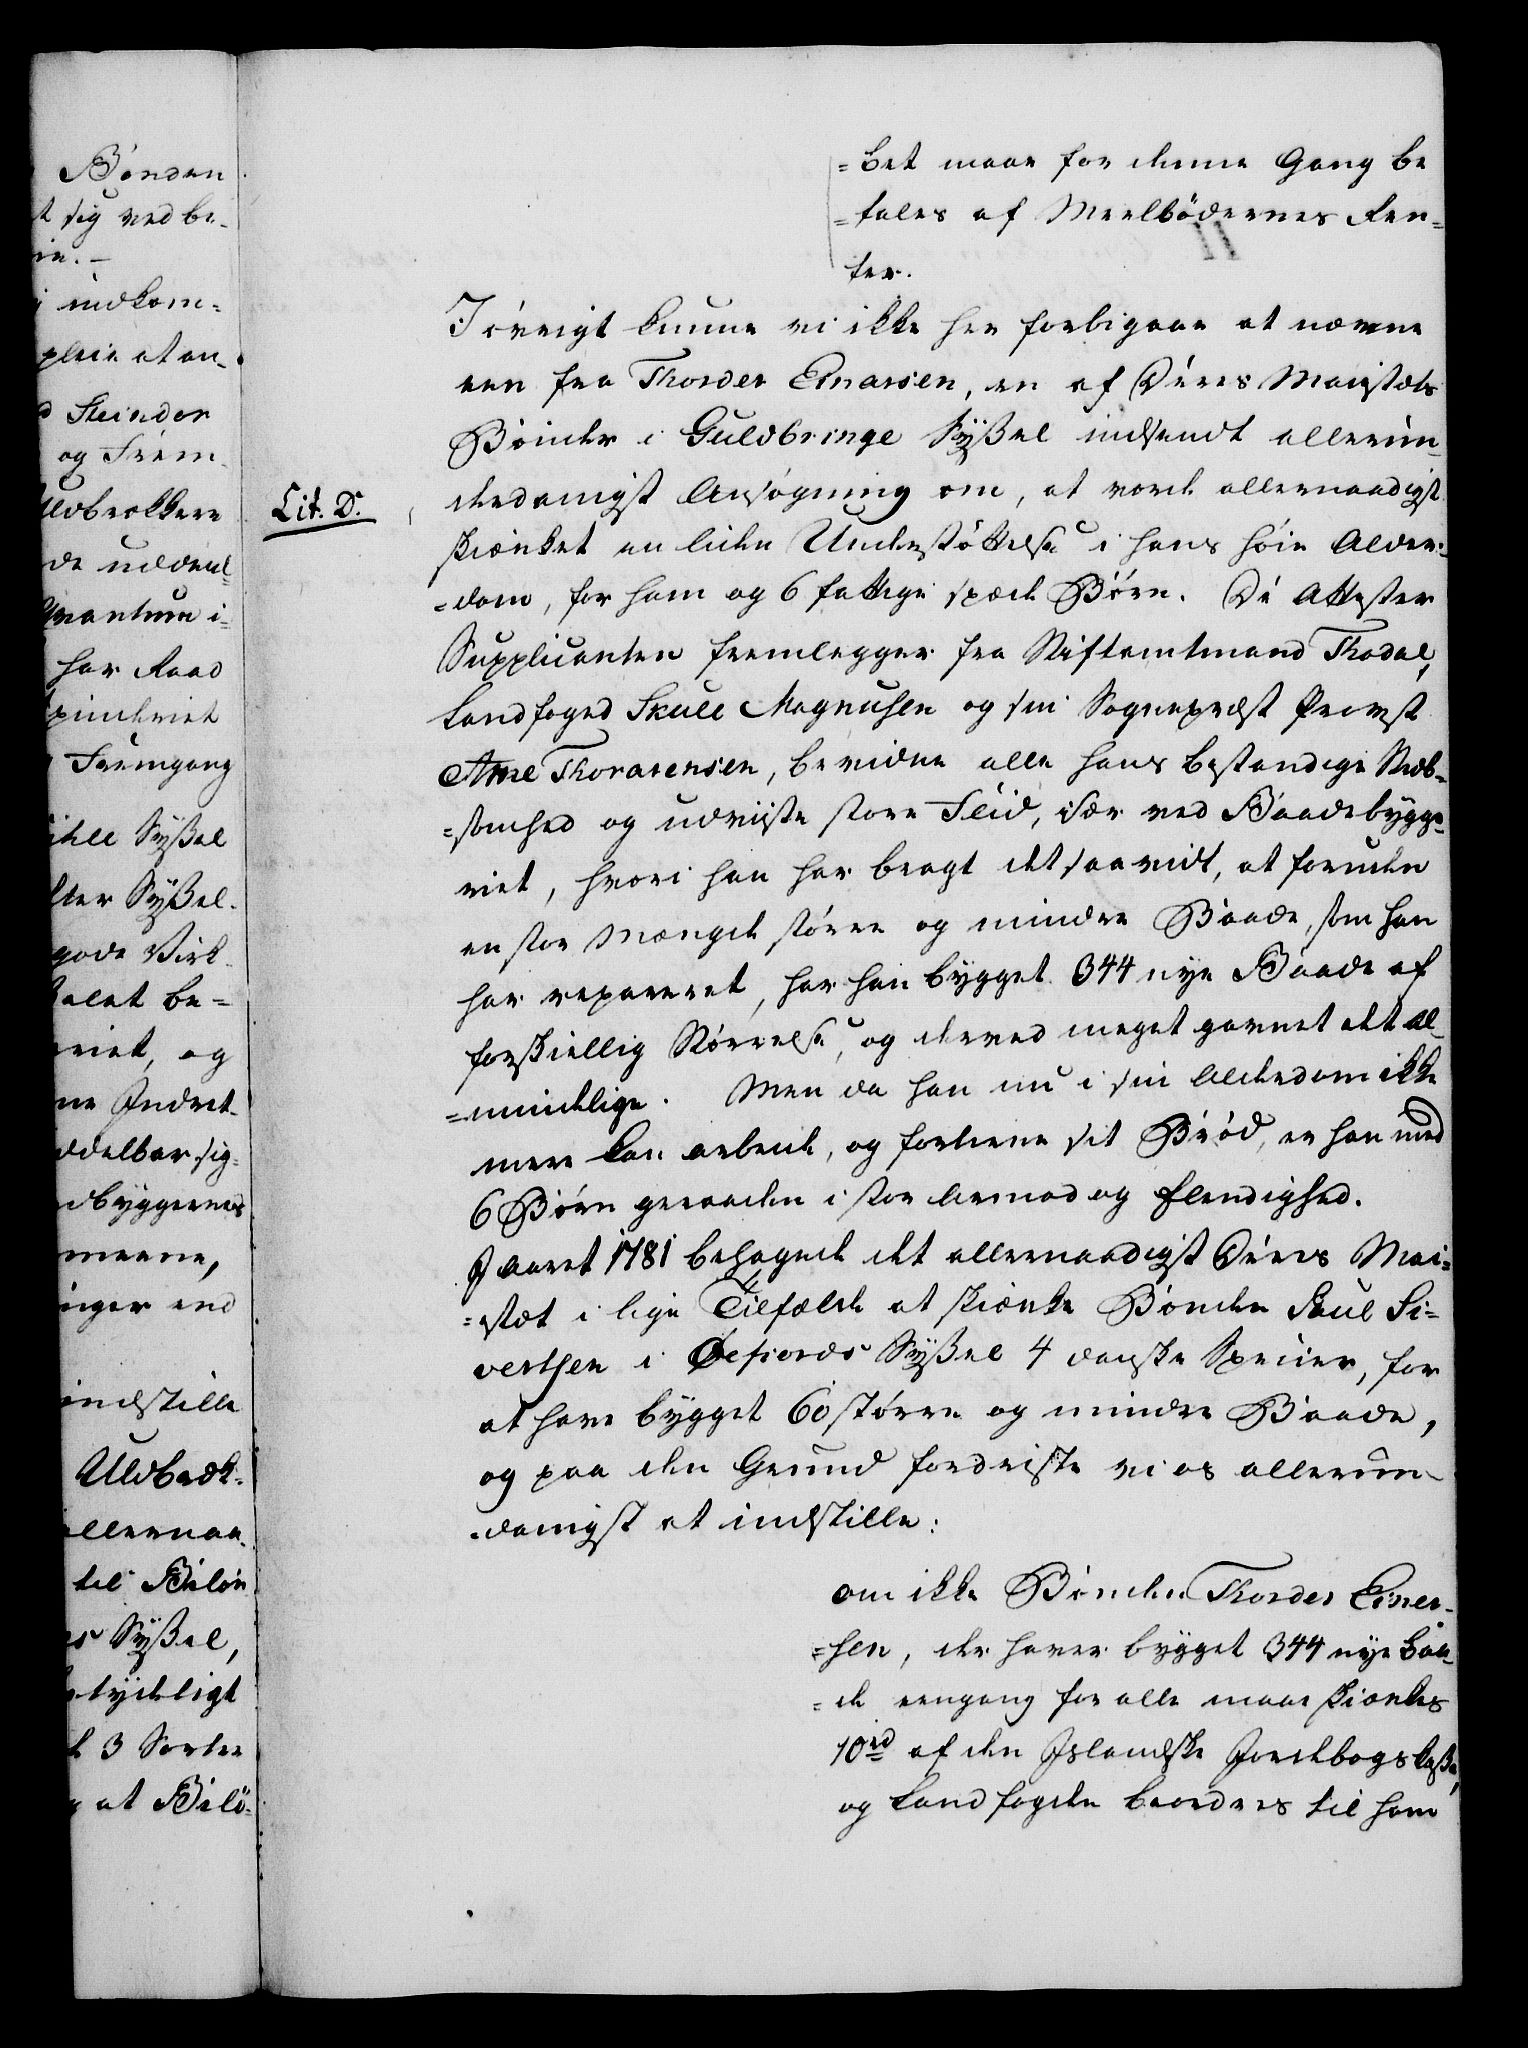 Bönden
t sig ved be-
rie. –
indkom-
pleie at an-
d Steindor
og Frem-
Uldbrökkere
de uddeel-
Qvantum i-
har Raad
spinderiet
Fremgang
Sÿßel
Sÿßel.
gode Virk-
be-
eriet, og
ne Indret-
ddelbar sig-
dbyggernes
meene,
inger end
indstille
Uldbrök-
allernaa-
til Belön
Sÿßel,
tÿdeligt
3 Sorter
at Belö-
=bet maae for denne Gang be
=tales af Meelbödernes Ren-
ter.
I övrigt kunne vi ikke her forbigaae at nævne
een fra Thorder Einarsen, en af Deres Maiestæts
Bönder i Guldbringe Sÿßel indsendt allerun-
Lit. D.
derdanigst Ansögning om, at vorde allernaadigst
skiænket en liden Understöttelse i hans höie Alder-
=dom, for ham og 6 fattige spæde Börn. De Attester
Supplicanten fremlegger fra Stiftamtmand Thodal,
Landfoged Skule Magnusen og sin Sognepræst Provst
Arne Thorarensen, bevidne alle hans bestandige Stræb-
=somhed og udviiste store Fliid, især ved Baadebygge-
riet, hvori han har bragt det saa vidt, at foruden
en stor Mængde större og mindre Baade, som han
har repareret, har han bygget 344 nye Baade af
forskiellig Störrelse, og derved meget gavnet det al-
=mindelige. Men da han nu i sin Alderdom ikke
mere kan arbeide, og fortiene sit Bröd, er han med
6 Börn geraaden i stor Armod og Elendighed.
I Aaret 1781 behagede det allernaadigst Deres Mai-
=stæt i lige Tilfælde at skiænke Bonden Poul Si-
vertsen i Øefiords Sÿßel 4 danske Specier, for
at have bygget 60 större og mindre Baade,
og paa den Grund fordriste vi os allerun-
=danigst at indstille:
om ikke Bonden Thorder Einer-
=sen, der haver bygget 344 nye Baa-
=de eengang for alle maae skiænkes
10 rd af den Islandske Jordebogs Kaße,
og Landfogden beordres til ham